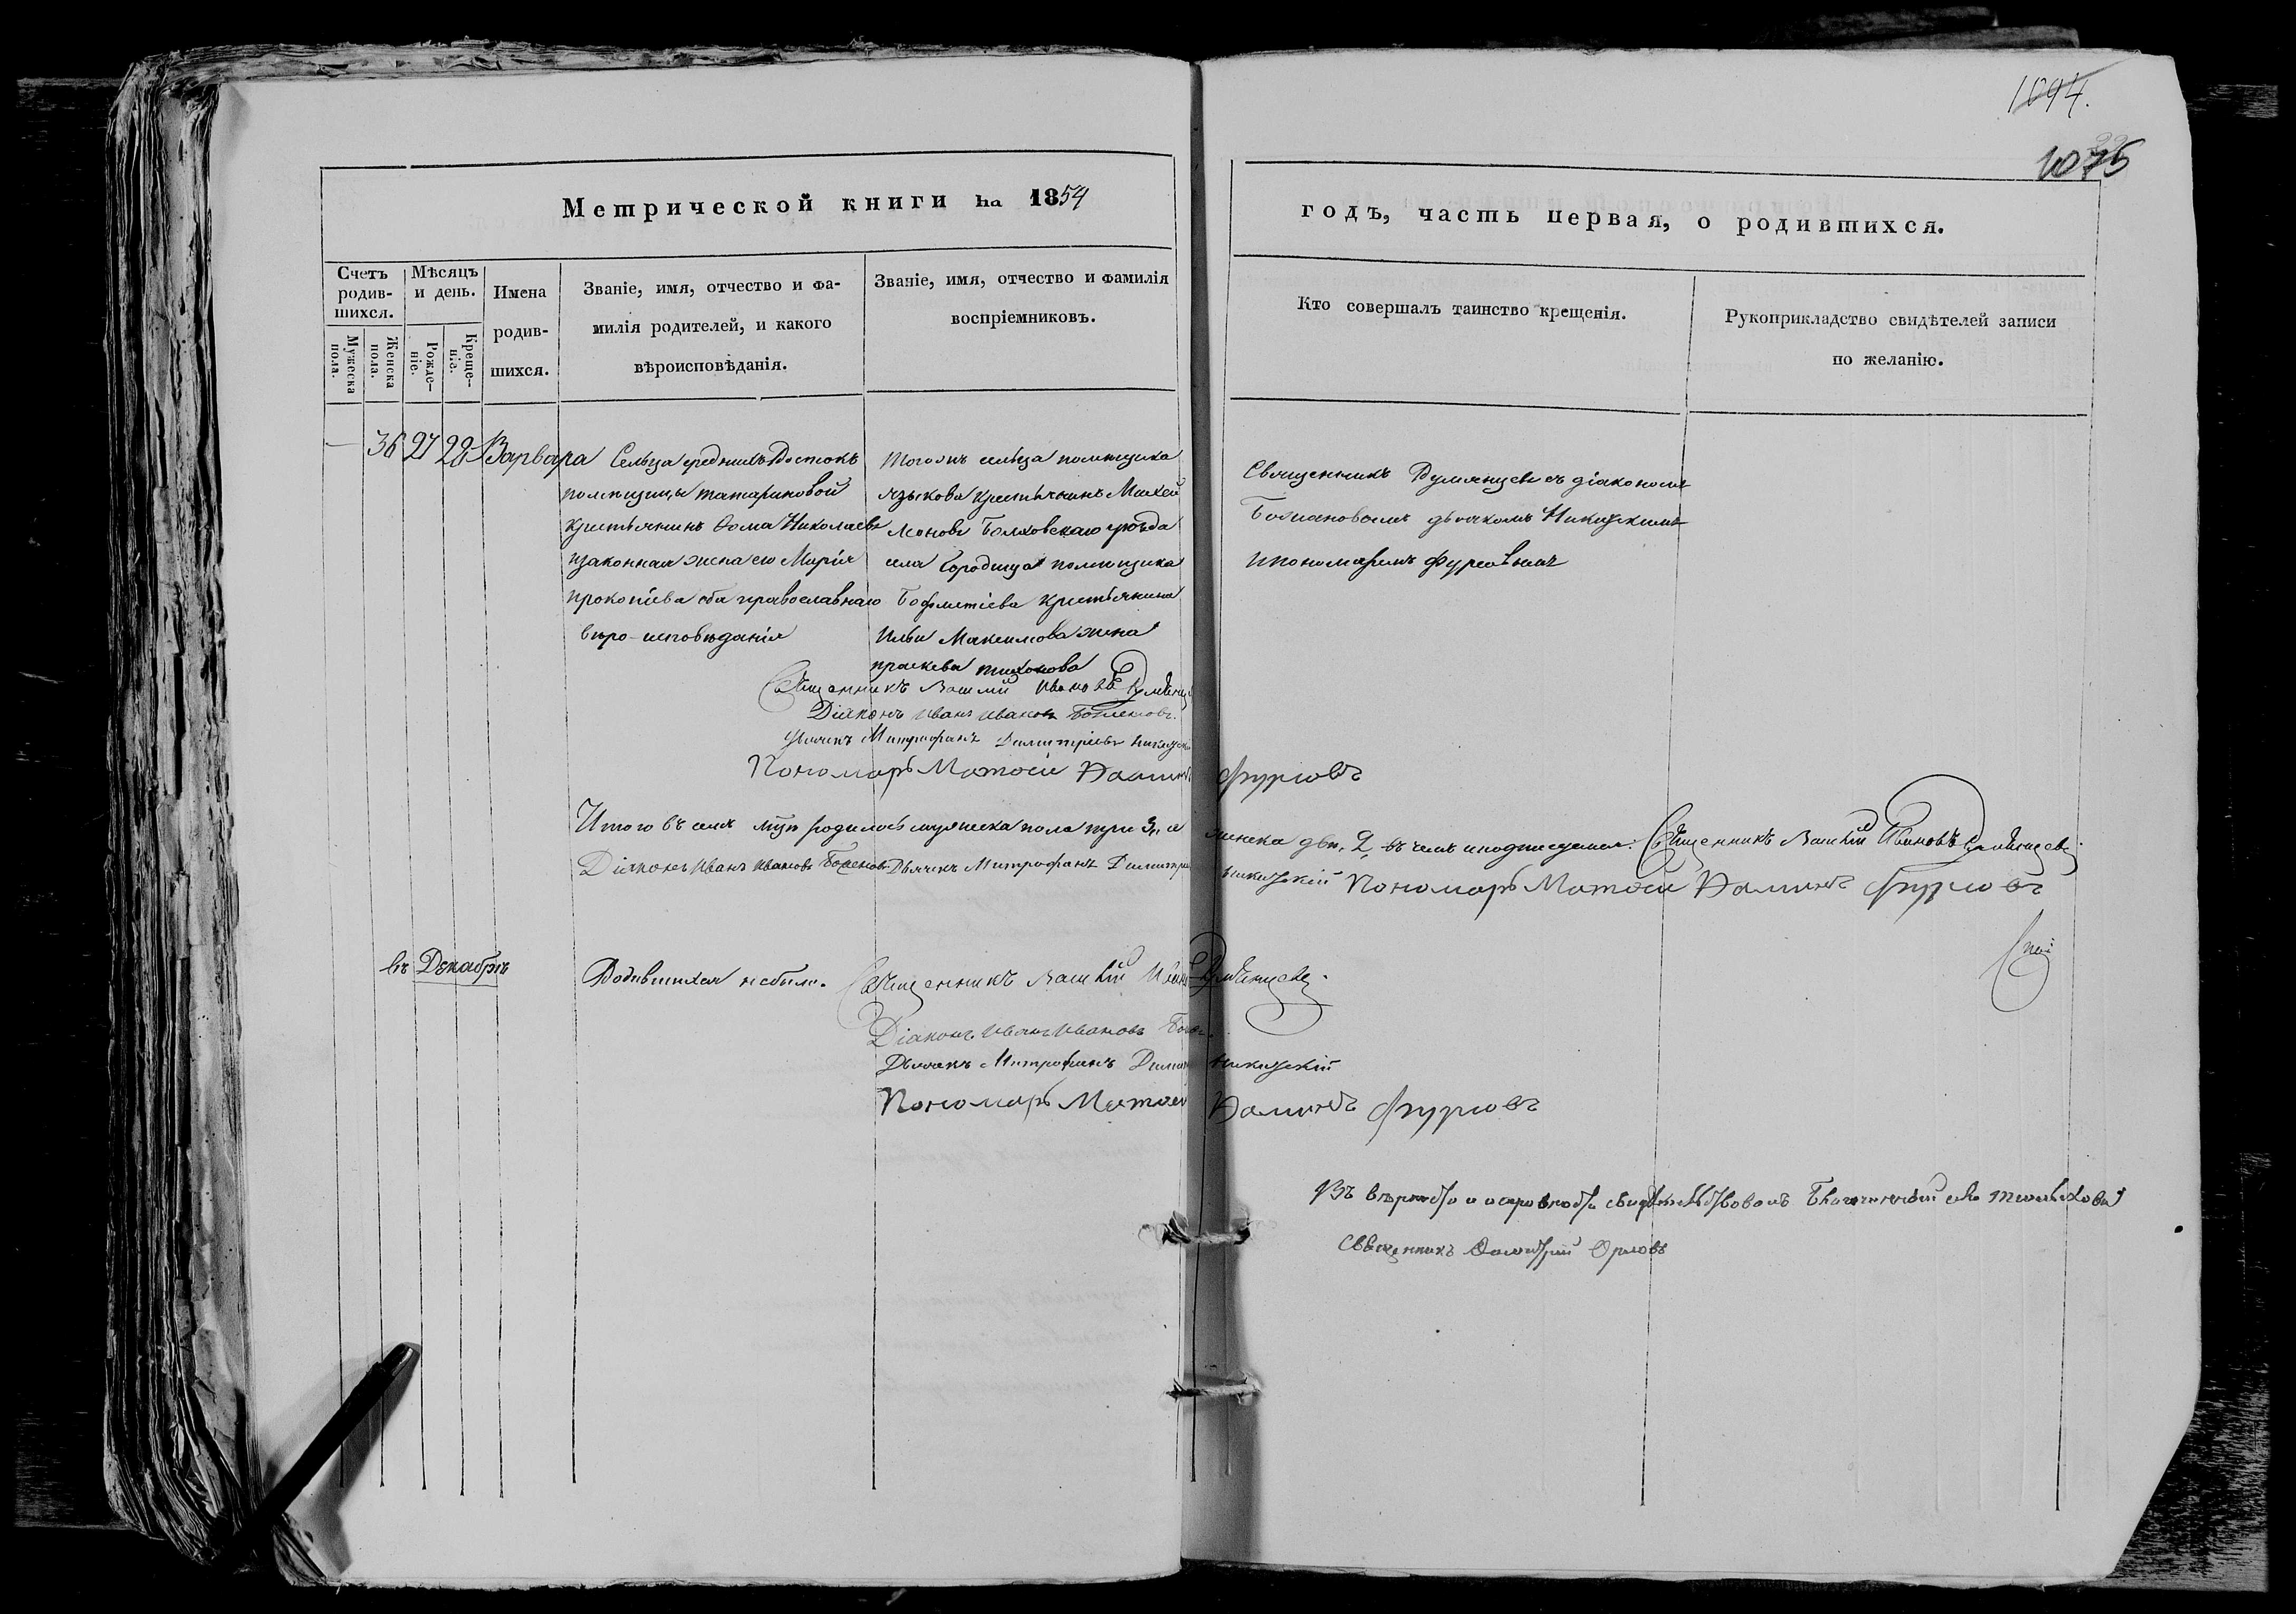 1094.
1075
Метрической книги на 1854
годъ, часть первая, о родившихся.
Счетъ родив-шихся.
Мужеска пола.
Женска пола.
Мѣсяцъ и день.
Рожде-ніе.
Креще-ніе.
Имена
родив-
шихся.
Званіе, имя, отчество и фа-
милія родителей, и какого
вѣроисповѣданія.
Званіе, имя, отчество и фамилія
воспріемниковъ.
Кто совершалъ таинство крещенія.
Рукоприкладство свидѣтелей записи
по желанію.
— 36 27 28 Варвара
Сельца
помещицы татариновой
крестьянинъ Ѳома Николаевъ
изаконная жена его Марія
прокопіева оба православнаго
веро-исповѣданія
Тогожъ сельца помещика
языкова крестьянинъ Михей
Леоновъ Болховскаго уѣзда
села Городища помещика
крестьянина
Ильи Максимова жена
праскева тихонова
Священникъ Румянцевъ съ діакономъ
дьячкомъ Никитскимъ
ипономаремъ Фурсовымъ
Священникъ Василій Ивановъ Румянцевъ
Діаконъ Иванъ Ивановъ
Дьячекъ Митрофанъ Димитріевъ Никитскій
Пономарь Матѳей Фурсовъ
Итого въ семъ родилось мужеска пола три 3, а женска две, 2, въ чемъ иподписуемся. Священникъ Василій Ивановъ Румянцевъ.
Діаконъ Иванъ Ивановъ Дьячекъ Митрофанъ Никитскій Пономарь Матѳей Фурсовъ
въ Декабрѣ
Родившихся небыло. Священникъ Василій Румянцевъ.
Діаконъ Иванъ Ивановъ
Дьячекъ Митрофанъ Никитскій
Пономарь Матѳей Фурсовъ
Въ верности и исправности свидетельствовалъ Благочинный
Священникъ Димитрій Орловъ